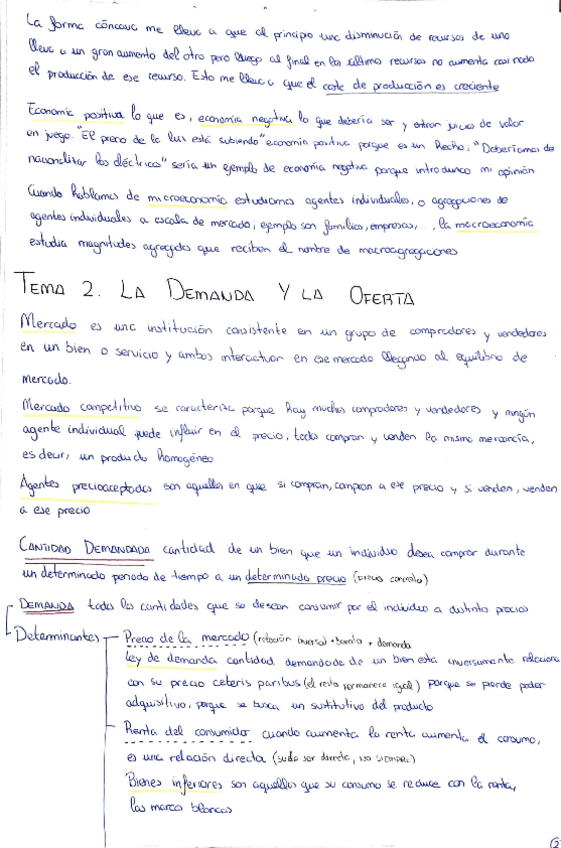 La forma cóncava me lleva a que al principio una disminución de recursos de uno
lleva a un gran aumento del otro pero luego al final en los últimos recursos no aumenta casi nada
el producción de ese recurso. Esto me lleva a que el coste de producción es creciente
Economía positiva lo que es, economía negativa lo que debería ser y entran juicios de valor
en juego. "El precio de la luz está subiendo" economía positiva porque es un hecho; "Deberíamos de
nacionalizar las eléctricas" sería un ejemplo de economía negativa porque introduzco mi opinión
Cuando hablamos de microeconomía estudiamos agentes individuales, o agregaciones de
agentes individuales a escala de mercado; ejemplo son familias, empresas, ..., la macroeconomía
estudia magnitudes agregadas que reciben el nombre de macroagregaciones
TEMA 2. LA DEMANDA Y LA OFERTA
Mercado es una institución consistente en un grupo de compradores y vendedores
en un bien o servicio y ambos interactúan en ese mercado llegando al equilibrio de
mercado.
Mercado competitivo se caracteriza porque hay muchos compradores y vendedores y ningún
agente individual puede influir en el precio; todos compran y venden la misma mercancía,
es decir, un producto homogéneo
Agentes precioaceptados son aquellos en que si compran, compran a ese precio y si venden, venden
a ese precio
CANTIDAD DEMANDADA cantidad de un bien que un individuo desea comprar durante
un determinado periodo de tiempo a un determinado precio (precio concreto)
DEMANDA todas las cantidades que se desean consumir por el individuo a distintos precios
Determinantes Precio de la mercado (relación inversa) + barato + demanda
Ley de demanda cantidad demandada de un bien esta inversamente relaciona
con su precio ceteris paribus (el resto permanece igual) porque se pierde poder
adquisitivo, porque se busca un sustitutivo del producto
Renta del consumidor cuando aumenta la renta aumenta el consumo,
es una relación directa (suele ser directa, no siempre)
Bienes inferiores son aquellos que su consumo se reduce con la renta,
las marcas blancas
2